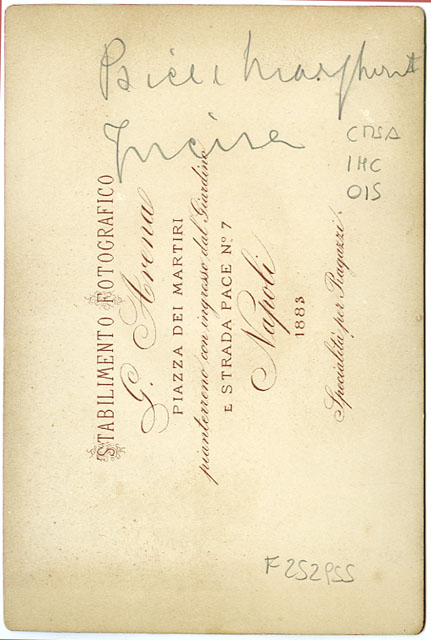 STABILIMENTO FOTOGRAFICO
G. Arena
PIAZZA DEI MARTIRI
pianterreno con ingresso dal Giardino
E STRADA PACE Nº 7
Napoli
1883
Specialità per Ragazzi.
IHC
OIS
F252PSS